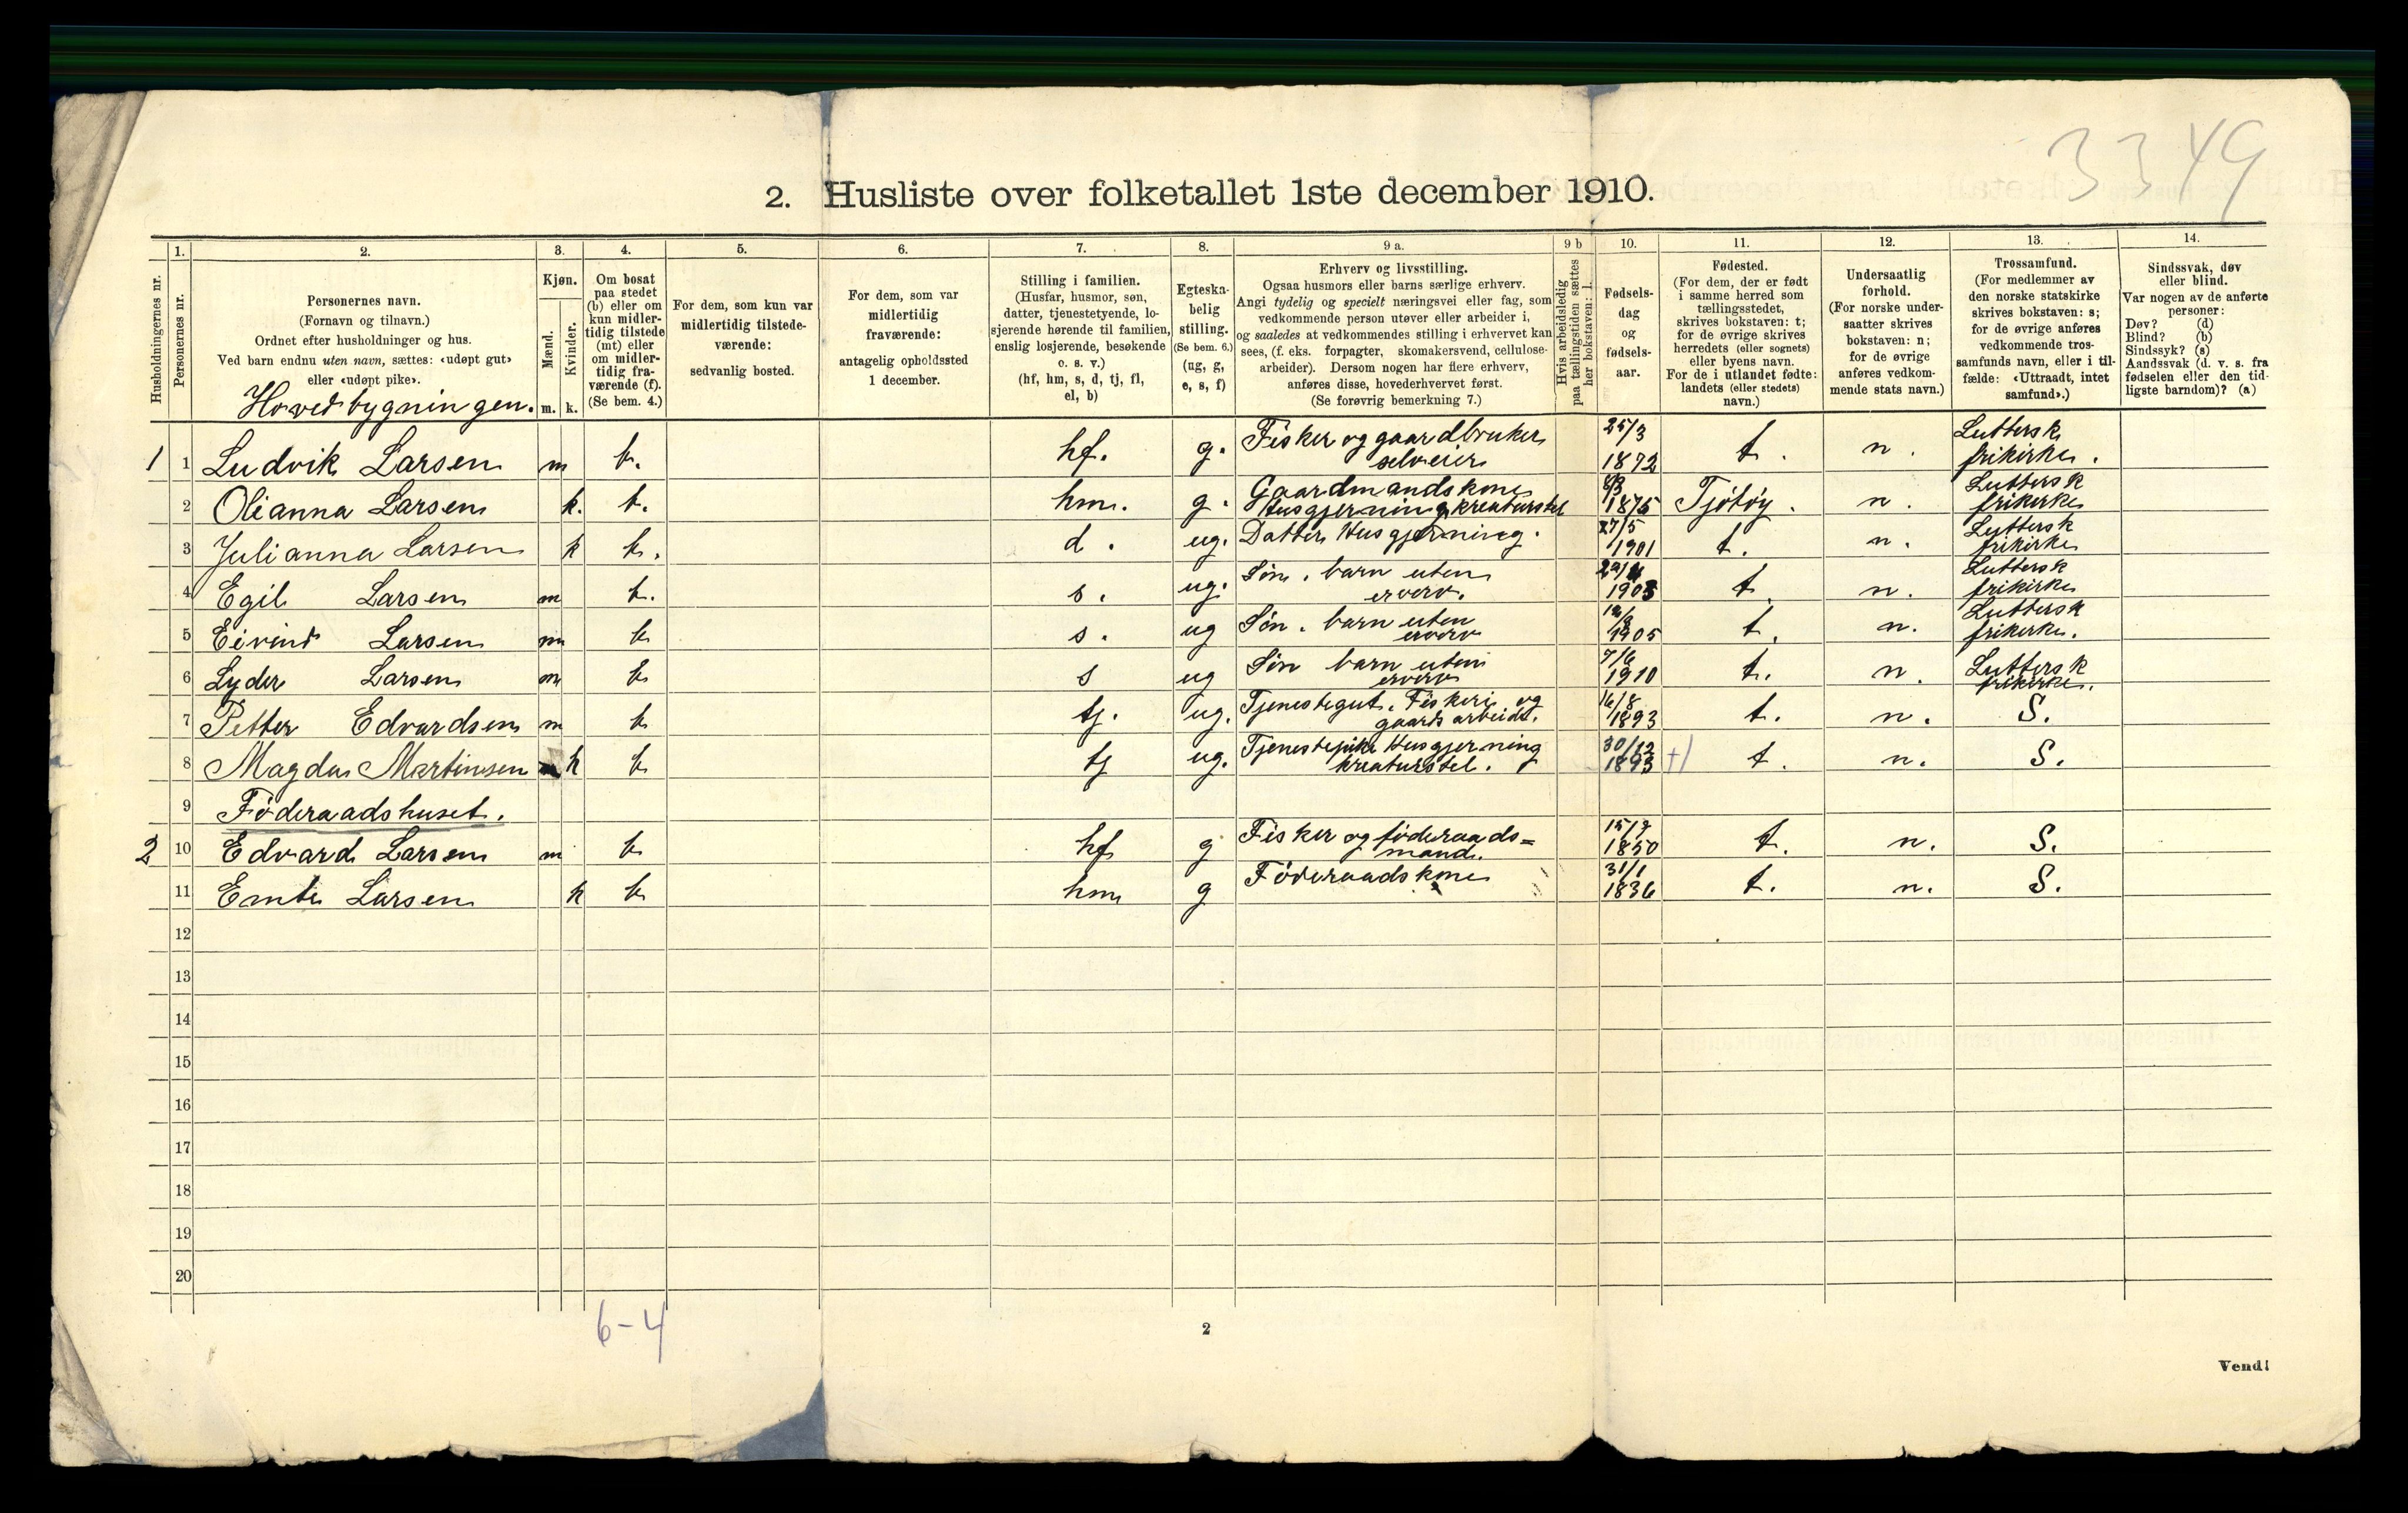 3349
2. Husliste over folketallet 1ste december 1910.
Husholdningernes nr.
1.
Personernes nr.
2.
Personernes navn.
(Fornavn og tilnavn.)
Ordnet efter husholdninger og hus.
Ved barn endnu uten navn, sættes: «udøpt gut»
eller «udøpt pike».
Hovedbygningen.
3.
Kjøn.
Mænd.
Kvinder.
m. k.
4.
Om bosat
paa stedet
(b) eller om
kun midler-
tidig tilstede
(mt) eller
om midler-
tidig fra-
værende (f).
(Se bem. 4.)
5.
For dem, som kun var
midlertidig tilstede-
værende:
sedvanlig bosted.
6.
For dem, som var
midlertidig
fraværende:
antagelig opholdssted
1 december.
7.
Stilling i familien.
(Husfar, husmor, søn,
datter, tjenestetyende, lo-
sjerende hørende til familien,
enslig losjerende, besøkende
o. s. v.)
(hf, hm, s, d, tj, fl,
el, b)
8.
Egteska-
belig
stilling.
(Se bem. 6.)
(ug, g,
e, s, f)
9 a.
Erhverv og livsstilling.
Ogsaa husmors eller barns særlige erhverv.
Angi tydelig og specielt næringsvei eller fag, som
vedkommende person utøver eller arbeider i,
og saaledes at vedkommendes stilling i erhvervet kan
sees, (f. eks. forpagter, skomakersvend, cellulose-
arbeider). Dersom nogen har flere erhverv,
anføres disse, hovederhvervet først.
(Se forøvrig bemerkning 7.)
9 b
Hvis arbeidsledig
paa tællingstiden sættes
her bokstaven: l.
10.
Fødsels-
dag
og
fødsels-
aar.
11.
Fødested.
(For dem, der er født
i samme herred som
tællingsstedet,
skrives bokstaven: t;
for de øvrige skrives
herredets (eller sognets)
eller byens navn.
For de i utlandet fødte:
landets (eller stedets)
navn.)
12.
Undersaatlig
forhold.
(For norske under-
saatter skrives
bokstaven: n;
for de øvrige
anføres vedkom-
mende stats navn.)
13.
Trossamfund.
(For medlemmer av
den norske statskirke
skrives bokstaven: s;
for de øvrige anføres
vedkommende tros-
samfunds navn, eller i til-
fælde: «Uttraadt, intet
samfund».)
14.
Sindssvak, døv
eller blind.
Var nogen av de anførte
personer:
Døv? (d)
Blind? (b)
Sindssyk? (s)
Aandssvak (d. v. s. fra
fødselen eller den tid-
ligste barndom)? (a)
1 1 Ludvik Larsen m b. hf. g. Fisker og gaardbruker selveier 25/3 1872 t. n. Luttersk frikirke.
2 Olianna Larsen k. b. hm. g. Gaardmandskone Husgjerning kreaturstel 1875 Tjøtøy. n. Luttersk frikerke
3 Julianna Larsen k b. d. ug. Datter Husgjerning. 27/5 1901 t. n. Luttersk frikirke
4 Egil Larsen m b. s. ug. Søn. barn uten erverv. t. n. Luttersk frikirke
5 Eivind Larsen m b s. ug Søn. barn uten erverv 1905 t. n. Luttersk frikerke.
6 Lyder Larsen m b s ug Søn barn uten erverv 7/6 1910 t. n. Luttersk frikirke.
7 Petter Edvardsen m b tj. ug. Tjenestegut. Fiskeri og gaards arbeide. 16/8 1893 t. n. S.
8 Magda Martinsen k b tj ug. Tjenestepike Husgjerning kreaturstel. 30/12 1893 t. n. S.
9 Føderaadshuset.
2 10 Edvard Larsen m b hf g Fisker og føderaads= mand. 15/7 1850 t. n. S.
11 Emte Larsen k b hm g Føderaadskone 31/1 1836 t. n. S.
12
13
14
15
16
17
18
19
20
6-4
2
Vend!